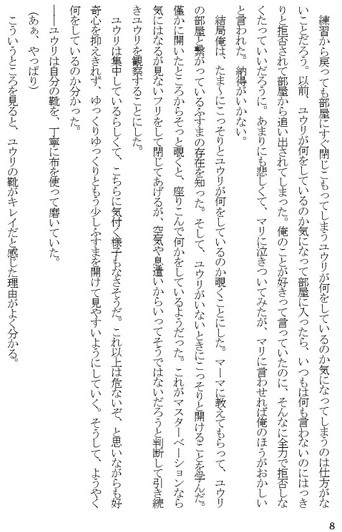 練習から戻っても部屋にすぐ閉じこもってしまうユウリが何をしているのか気になってしまうのは仕方がな
いことだろう。以前、ユウリが何をしているのか気になって部屋に入ったら、いつもは何も言わないのにはっき
りと拒否されて部屋から追い出されてしまった。俺のことが好きって言っていたのに、そんなに全力で拒否しな
くたっていいだろうに。あまりにも悲しくて、マリに泣きついてみたが、マリに言わせれば俺のほうがおかしい
と言われた。納得がいかない。
結局俺は、たま～にこっそりとユウリが何をしているのか覗くことにした。マーマに教えてもらって、ユウリ
の部屋と繋がっているふすまの存在を知った。そして、ユウリがいないときにこっそりと開けることを学んだ。
僅かに開いたところからそっと覗くと、座りこんで何かをしているようだった。これがマスターベーションなら
気にはなるが見ないフリをして閉じてあげるが、空気や息遣いからいってそうではないだろうと判断して引き続
きユウリを観察することにした。
ユウリは集中しているらしくて、こちらに気付く様子もなさそうだ。これ以上は危ないぞ、と思いながらも好
奇心を抑えきれず、ゆっくりゆっくりともう少しふすまを開けて見やすいようにしていく。そうして、ようやく
何をしているのか分かった。
――ユウリは自分の靴を、丁寧に布を使って磨いていた。
（あぁ、やっぱり）
こういうところを見ると、ユウリの靴がキレイだと感じた理由がよく分かる。
8